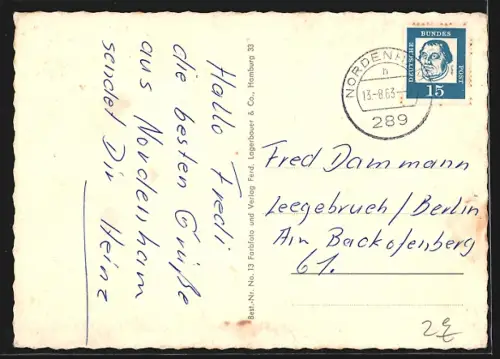 Hallo Fredi
die besten Grüße
aus Nordenham
sendet Dir Heinz
Best.-Nr. No. 13 Farbfoto und Verlag Ferd. Lagerbauer & Co., Hamburg 33
NORDENH
h
13.-8.63
289
DEUTSCHE
BUNDES
POST
15
Fred Dammann
Leegebruch/Berlin
Am Backofenberg
61.